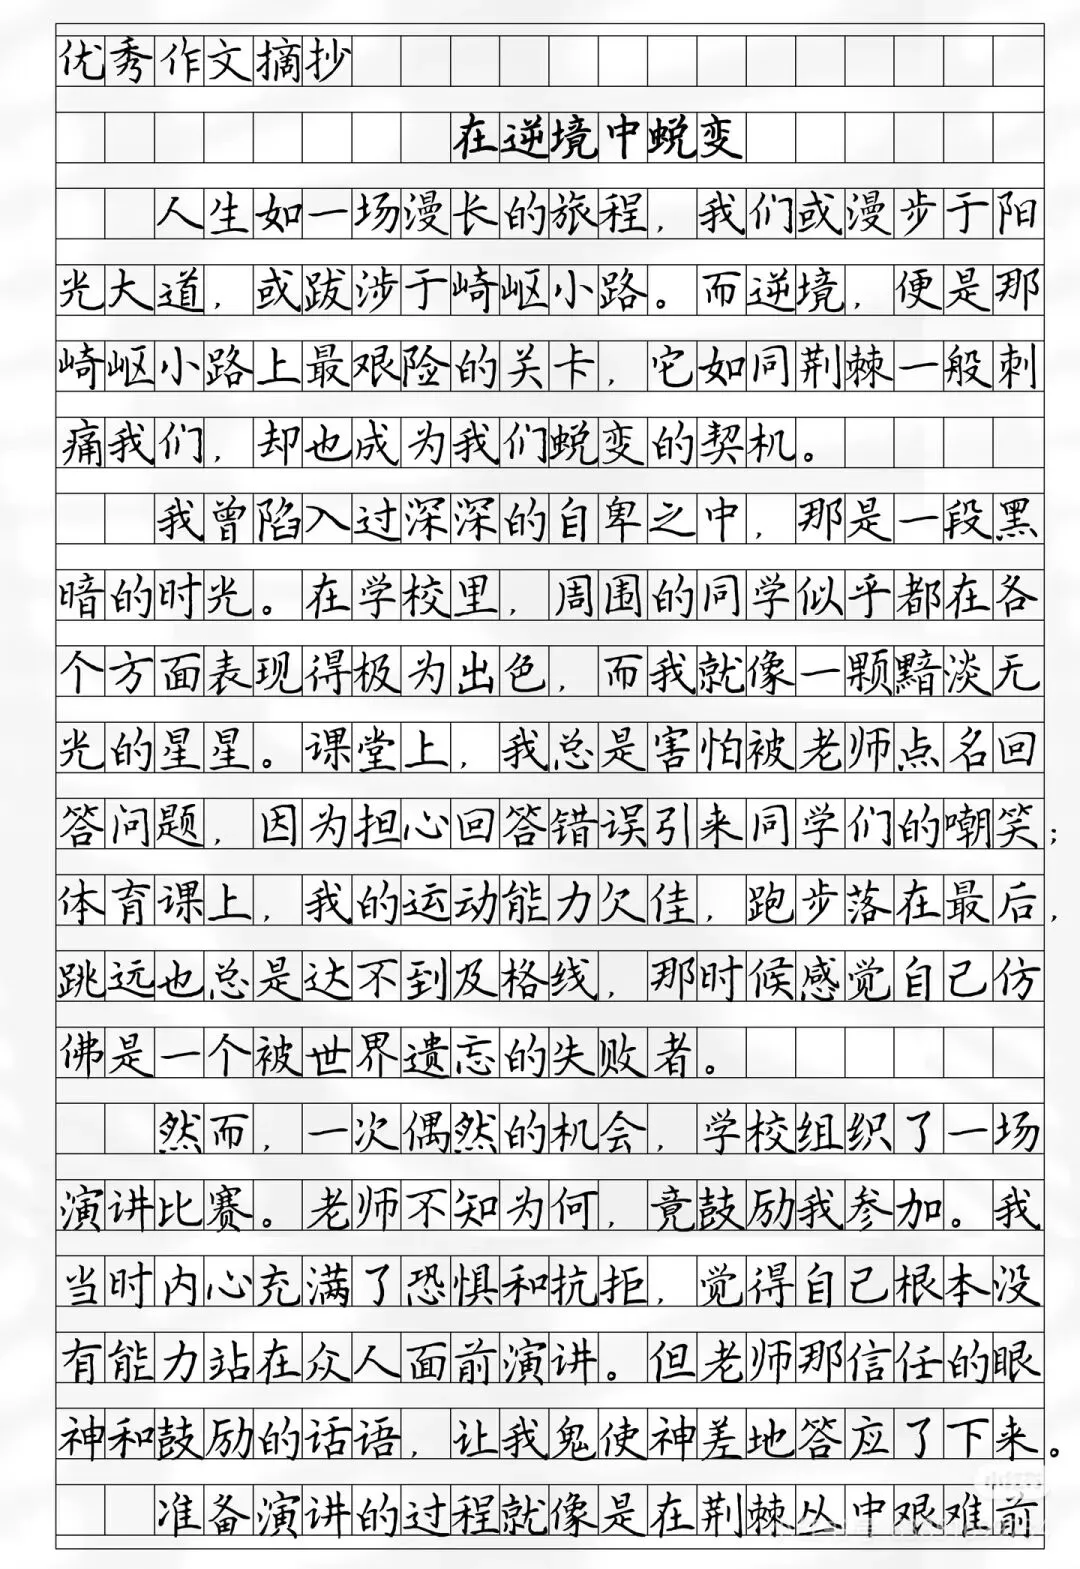 优秀作文摘抄
在逆境中蜕变
人生如一场漫长的旅程，我们或漫步于阳
光大道，或跋涉于崎岖小路。而逆境，便是那
崎岖小路上最艰险的关卡，它如同荆棘一般刺
痛我们，却也成为我们蜕变的契机。
我曾陷入过深深的自卑之中，那是一段黑
暗的时光。在学校里，周围的同学似乎都在各
个方面表现得极为出色，而我就像一颗黯淡无
光的星星。课堂上，我总是害怕被老师点名回
答问题，因为担心回答错误引来同学们的嘲笑；
体育课上，我的运动能力欠佳，跑步落在最后，
跳远也总是达不到及格线，那时候感觉自己仿
佛是一个被世界遗忘的失败者。
然而，一次偶然的机会，学校组织了一场
演讲比赛。老师不知为何，竟鼓励我参加。我
当时内心充满了恐惧和抗拒，觉得自己根本没
有能力站在众人面前演讲。但老师那信任的眼
神和鼓励的话语，让我鬼使神差地答应了下来。
准备演讲的过程就像是在荆棘丛中艰难前